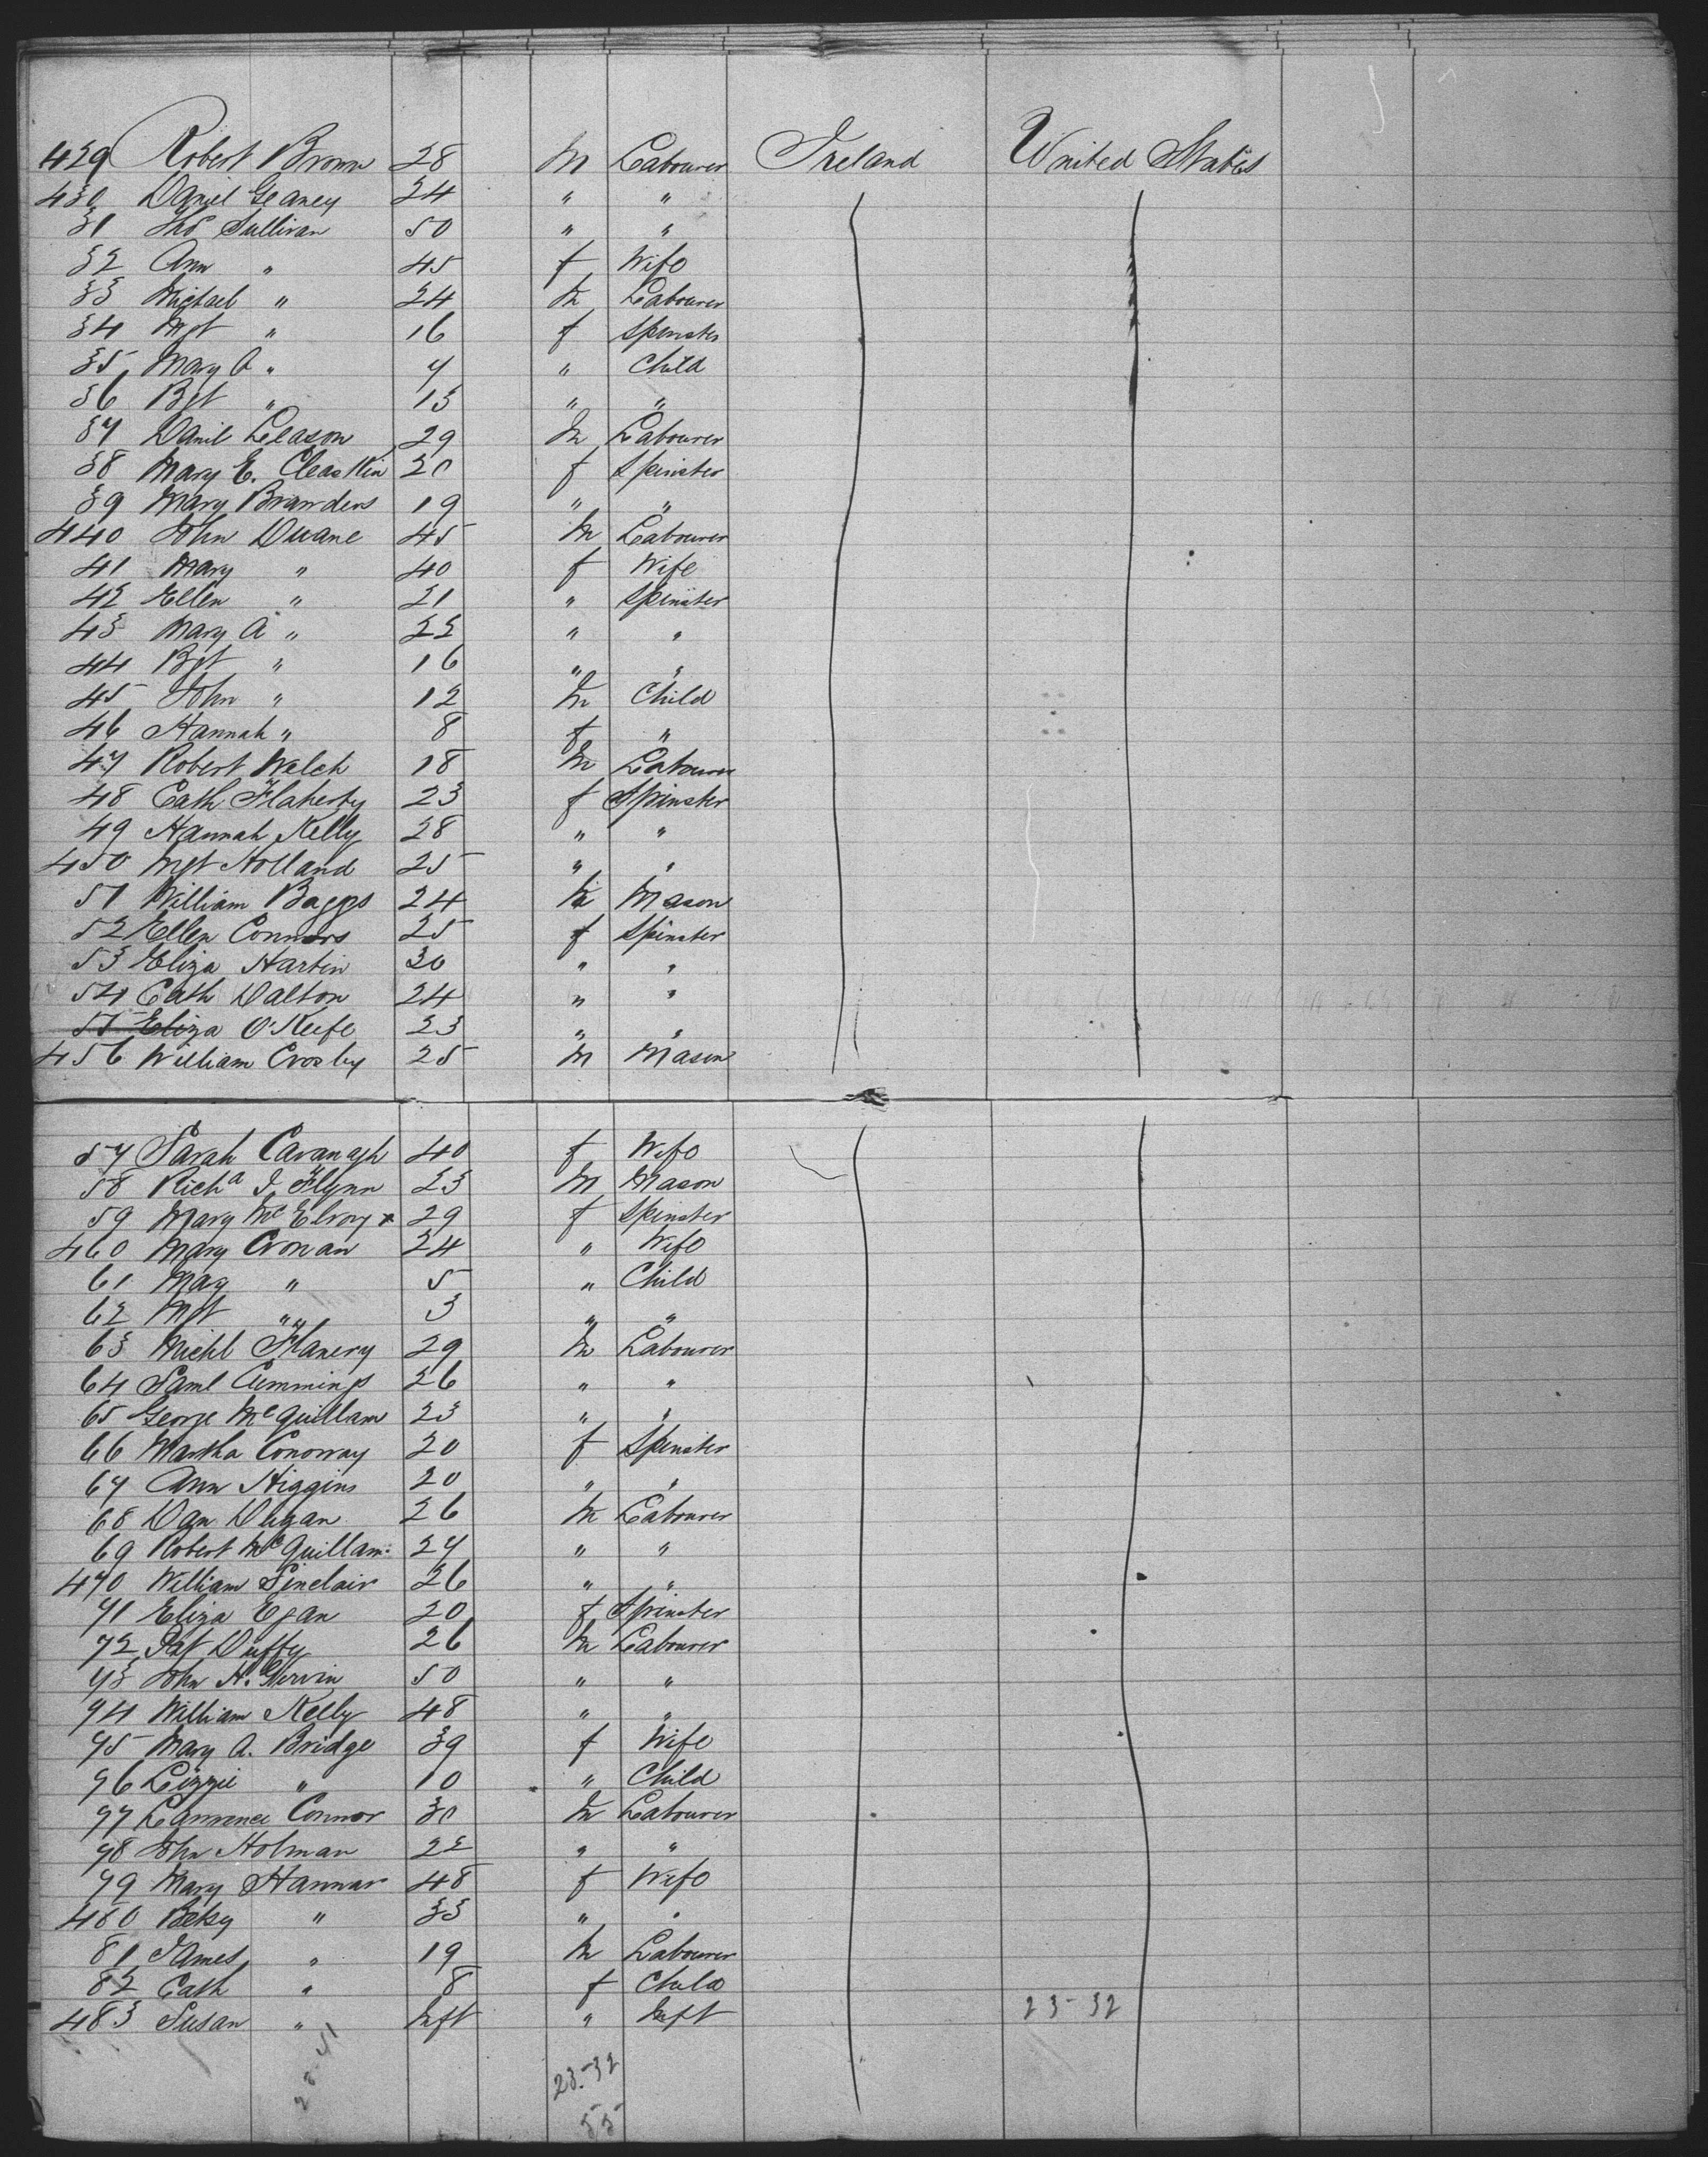 429 Robert Brown 28 M Labourer Ireland United States
430 Daniel Geaney 24 " "
31 Thos Sullivan 50 " "
32 Ann " 45 f Wife
33 Michael " 24 M Labourer
34 Mgt " 16 f Spinster
35 Mary A " 7 " Child
36 Bgt " 13 " "
37 Danil Leason 29 M Labourer
38 Mary E. Cleaskin 20 f Spinster
39 Mary Branders 19 " "
440 John Duane 45 M Labourer
41 Mary " 40 f Wife
42 Ellen " 21 " Spinster
43 Mary A " 22 " "
44 Bgt " 16 " "
45 John " 12 M Child
46 Hannah " 8 f "
47 Robert Walch 18 M Labourer
48 Cath Flaherty 23 f Spinster
49 Hannah Kelly 28 " "
450 Mgt Holland 25 " "
51 William Baggs 24 M Mason
52 Ellen Connors 25 f Spinster
53 Eliza Hartin 30 " "
54 Cath Dalton 24 " "
55 Eliza O'Keefe 23 " "
456 William Crosby 25 M Mason
57 Sarah Cavanagh 40 f Wife
58 Richd J. Flynn 23 M Mason
59 Mary McElroy x 29 f Spinster
460 Mary Cronan 24 " Wife
61 May " 5 " Child
62 Mgt " 3 " "
63 Michl Flanery 29 M Labourer
64 Saml Cummings 26 " "
65 George McQuillam 23 " "
66 Martha Conoway 20 f Spinster
67 Ann Higgins 20 " "
68 Dan Dugan 26 M Labourer
69 Robert McQuillam 27 " "
470 William Sinclair 26 " "
71 Eliza Egan 20 f Spinster
72 Pat Duffy 26 M Labourer
73 John H. Girvin 50 " "
74 William Kelly 48 " "
75 Mary A. Bridge 39 f Wife
76 Lizzie " 10 " Child
77 Lawrence Connor 30 M Labourer
78 John Holman 22 " "
79 Mary Hannar 48 f Wife
480 Betsy " 33 " "
81 James " 19 M Labourer
82 Cath " 8 f Child
483 Susan " Inft " Inft 23-32
28-41 23-32
55